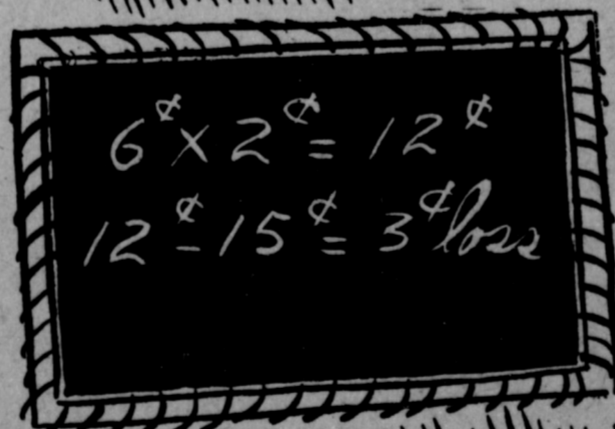 6¢ × 2¢ = 12¢
12¢ - 15¢ = 3¢ loss